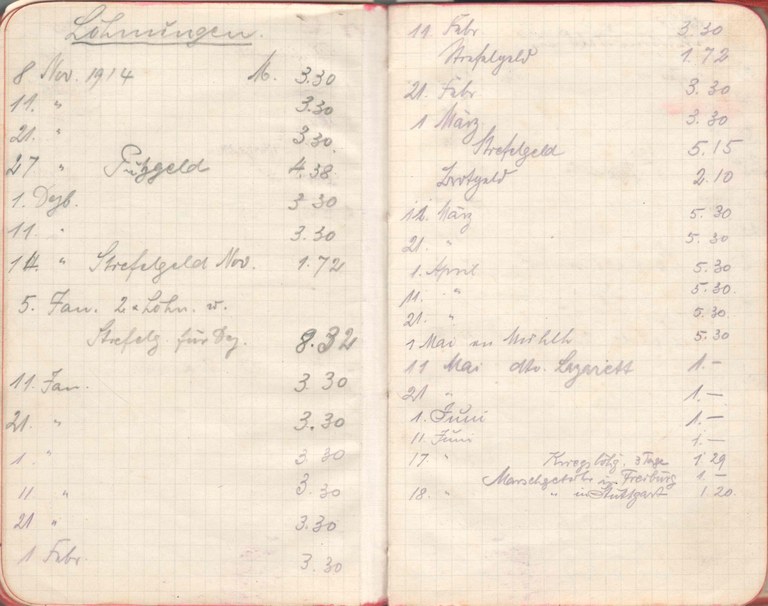 Löhnungen.
8 Nov. 1914 M. 3.30
11. " 3.30
21. " 3.30
27 " Putzgeld 4.38
1. Dezb. 3 30
11 " 3.30
14. " Stiefelgeld Nov. 1.72
5. Jan. 2 x Löhn. u.
Stiefelg. für Dez. 8.32
11. Jan. 3 30
21. " 3.30
1 " 3 30
11 " 3 30
21 " 3.30
1 Febr 3.30
11 Febr 3.30
Stiefelgeld 1.72
21. Febr 3.30
1 März 3.30
Stiefelgeld 5.15
Brotgeld 2.10
12. März 5.30
21. " 5.30
1. April 5.30
11. " 5.30
21. " 5.30
1 Mai 5.30
11 Mai dto. Lazarett 1.-
21 " 1.—
1. Juni 1.—
11 Juni 1.—
17 " 3 Tage 1 29
in Freiburg 1 —
18. " " in Stuttgart 1.20.